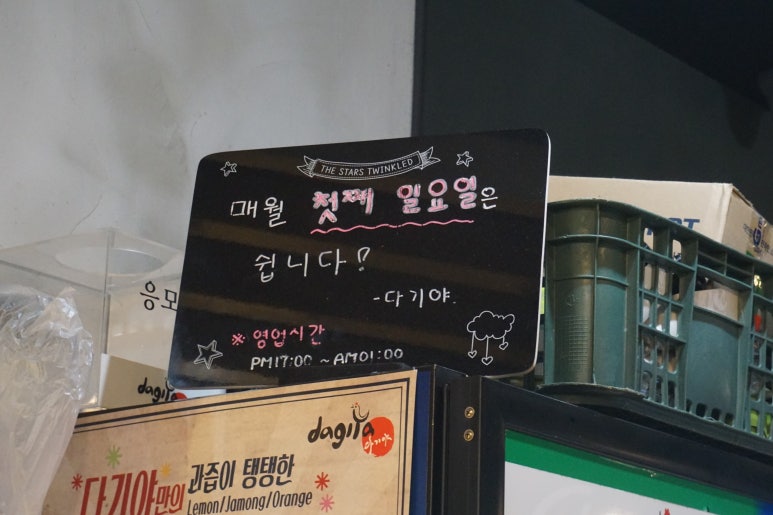 THE STARS TWINKLED
매월 첫째 일요일은
쉽니다!
-다기야.
※ 영업시간
PM17:00 ~ AM01:00
응모
dagiya
dagiya
다기야
다기야만의 과즙이 탱탱한
Lemon/Jamong/Orange